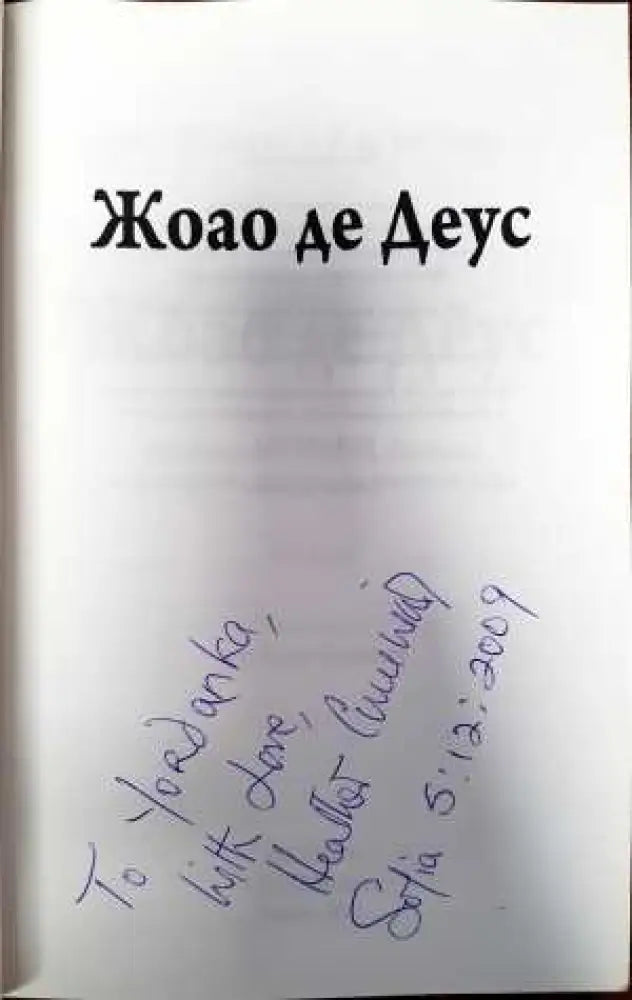 Жоао де Деус
To Yordanka,
With Love,
Heather Cumming
Sofia 5:12:2009